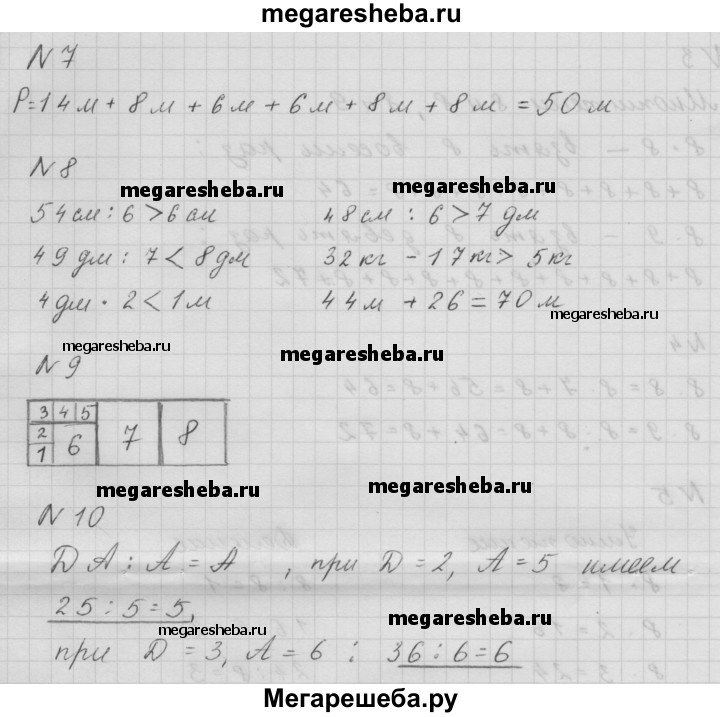 megaresheba.ru
N 7
P=14м+8м+6м+6м+8м+8м=50м
N 8
megaresheba.ru megaresheba.ru
54см:6>6см 48см:6>7дм
49дм:7<8дм 32кг-17кг>5кг
4дм·2<1м 44м+26=70м
megaresheba.ru
megaresheba.ru megaresheba.ru
N 9
3 4 5
2
1 6 7 8
megaresheba.ru megaresheba.ru
N 10
DA:A=A, при D=2, A=5 имеем
25:5=5,
megaresheba.ru megaresheba.ru
при D=3, A=6: 36:6=6
Мегарешеба.ру